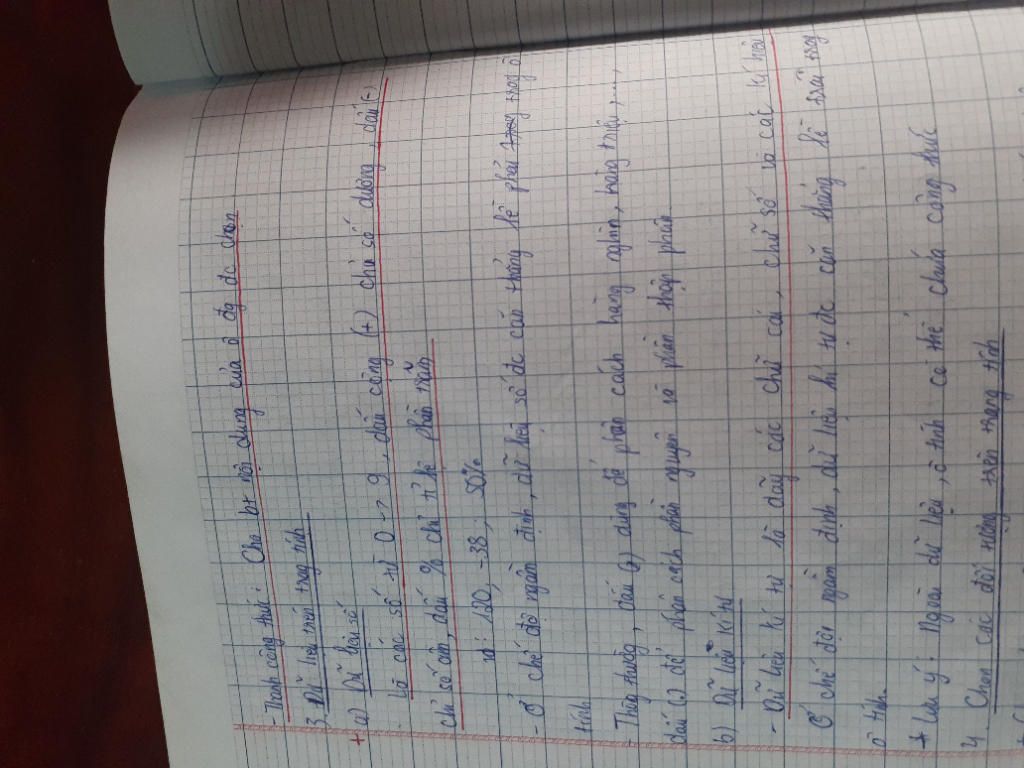 - Thanh công thức: Cho bt nội dung của ô đg đc chọn
3. Dữ liệu trên trag tính
+ a) Dữ liệu số
là các số từ 0 -> 9, dấu cộng (+) chỉ số dương, dấu (-)
chỉ số âm, dấu % chỉ tỉ lệ phần trăm
vd: 120, -38, 50%
- Ở chế độ ngầm định, dữ liệu số đc căn thẳng lề phải trog ô
tính.
- Thôg thườg, dấu (,) dùng để phân cách hàng nghìn, hàng triệu,...,
dấu (.) để phân cách phần nguyên và phần thập phân
b) Dữ liệu kí tự
- Dữ liệu kí tự là dãy các chữ cái, chữ số và các kí hiệu
Ở chế độ ngầm định, dữ liệu kí tự đc căn thẳng lề trái trog
ô tính.
* Lưu ý: Ngoài dữ liệu, ô tính có thể chứa công thức
4. Chọn các đối tượng trên trang tính